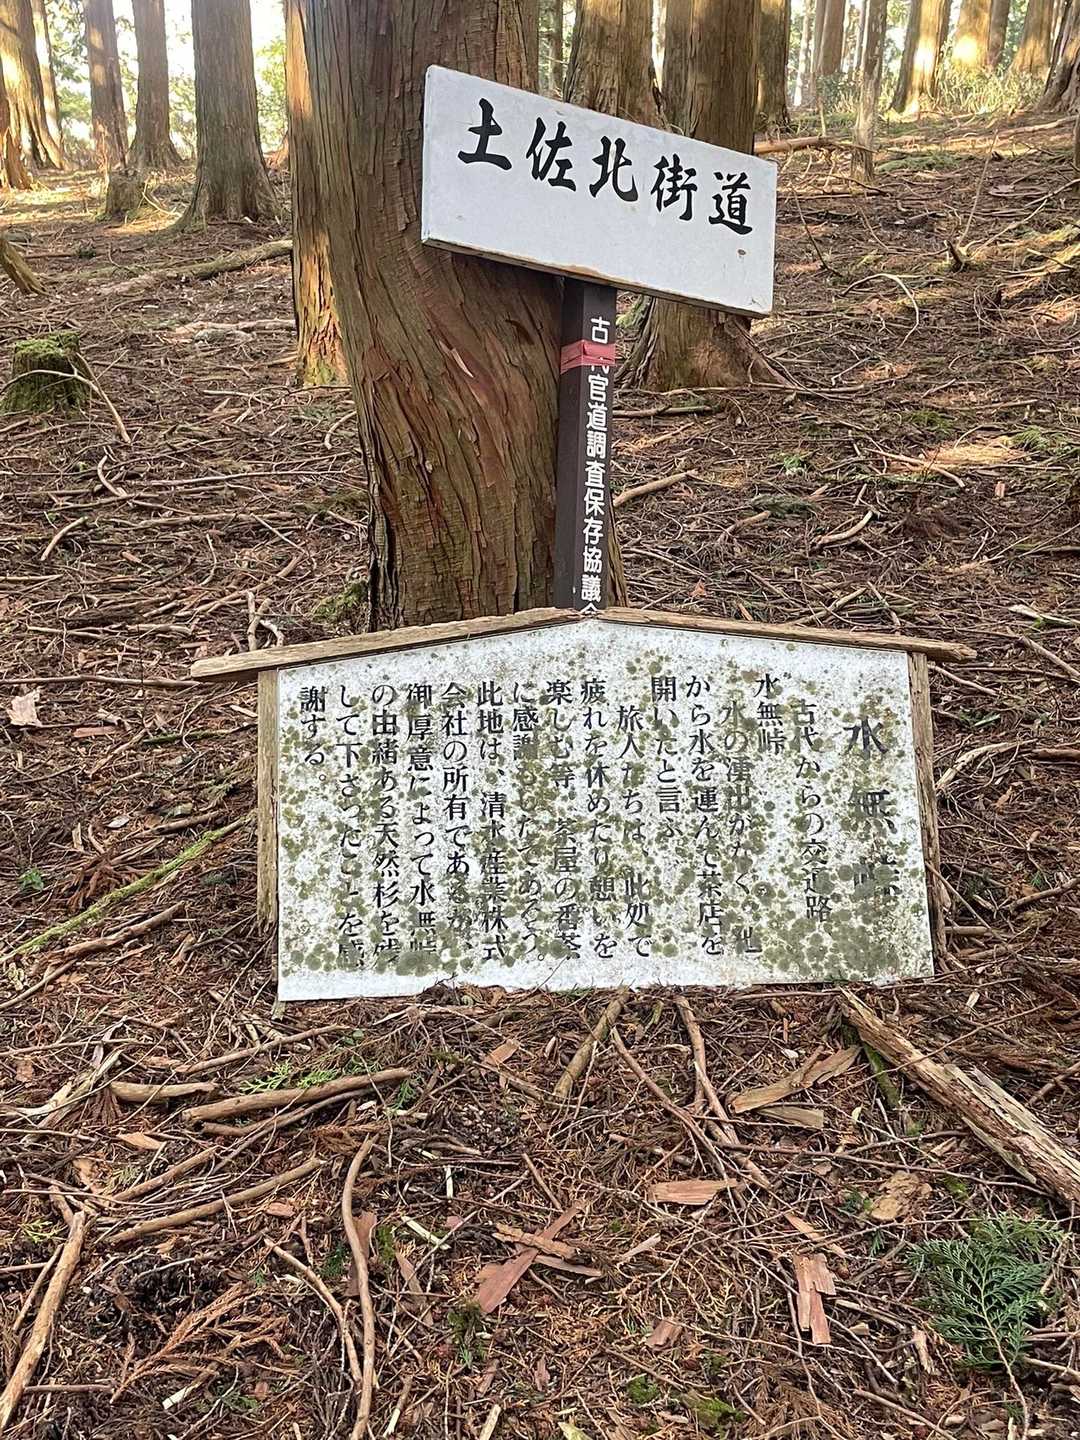 土佐北街道
古代官道調査保存協議会
水無峠
古代からの交通路
水無峠
水の湧出がなく、他
から水を運んで茶店を
開いたと言ふ。
旅人たちは、此処で
疲れを休めたり憩いを
楽しむ等、茶屋の番茶
に感謝もしたであろう。
此地は、清水産業株式
会社の所有であるが、
御厚意によって水無峠
の由緒ある天然杉を残
して下さったことを感
謝する。